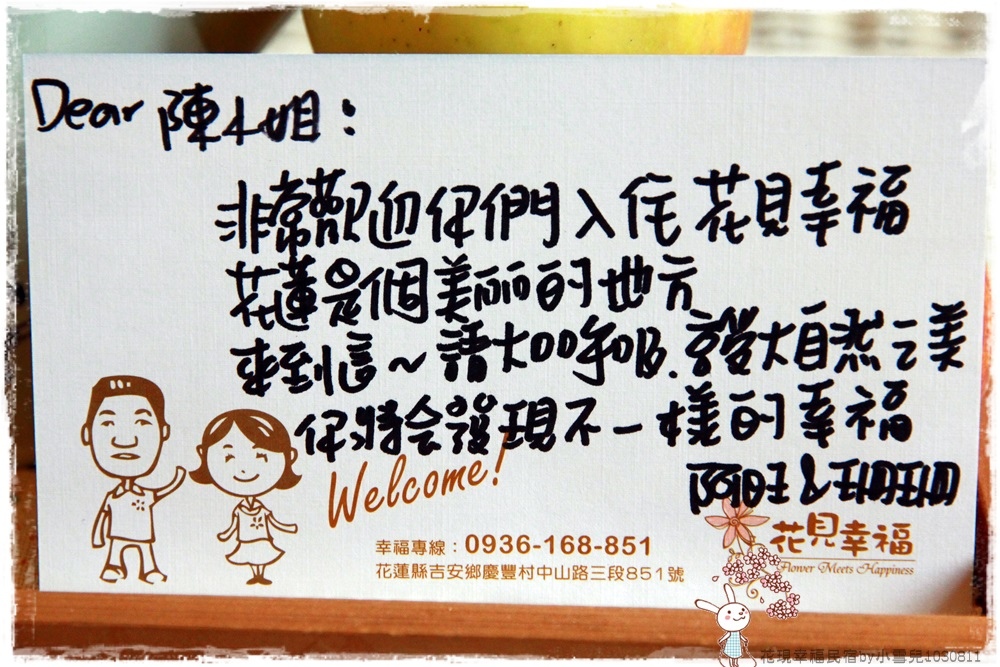 Dear 陳小姐：
非常歡迎你們入住花見幸福
花蓮是個美丽的地方
來到這～請大口呼吸.享受大自然之美
你將会發現不一樣的幸福
阿旺&珊珊
Welcome!
幸福專線：0936-168-851
花蓮縣吉安鄉慶豐村中山路三段851號
花見幸福
Flower Meets Happiness
花現幸福民宿by小雪兒1050811